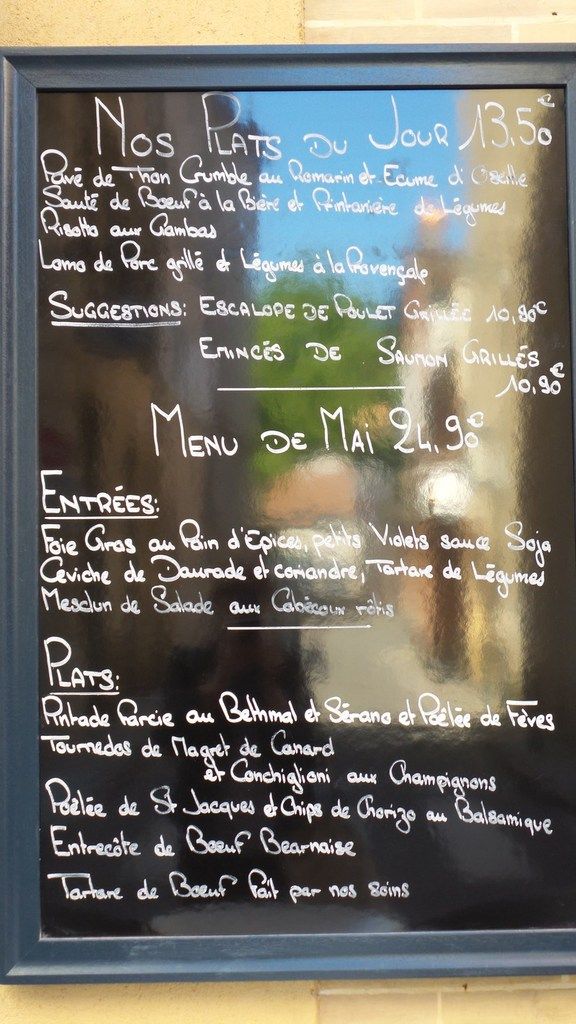 Nos Plats du Jour 13.50€
Pavé de Thon Crumble au Romarin et Ecume d'Oseille
Sauté de Boeuf à la Bière et Printanière de Légumes
Risotto aux Gambas
Lomo de Porc grillé et Légumes à la Provençale
SUGGESTIONS: ESCALOPE DE POULET GRILLÉE 10,90€
EMINCÉS DE SAUMON GRILLÉS
10,90€
Menu de Mai 24,90€
ENTRÉES:
Foie Gras au Pain d'Epices, petits Violets sauce Soja
Ceviche de Daurade et coriandre, Tartare de Légumes
Mesclun de Salade aux Cabécoux rôtis
PLATS:
Pintade Farcie au Bethmal et Sérano et Poêlée de Fèves
Tournedos de Magret de Canard
et Conchiglioni aux Champignons
Poêlée de St Jacques et Chips de Chorizo au Balsamique
Entrecôte de Boeuf Bearnaise
Tartare de Boeuf fait par nos soins